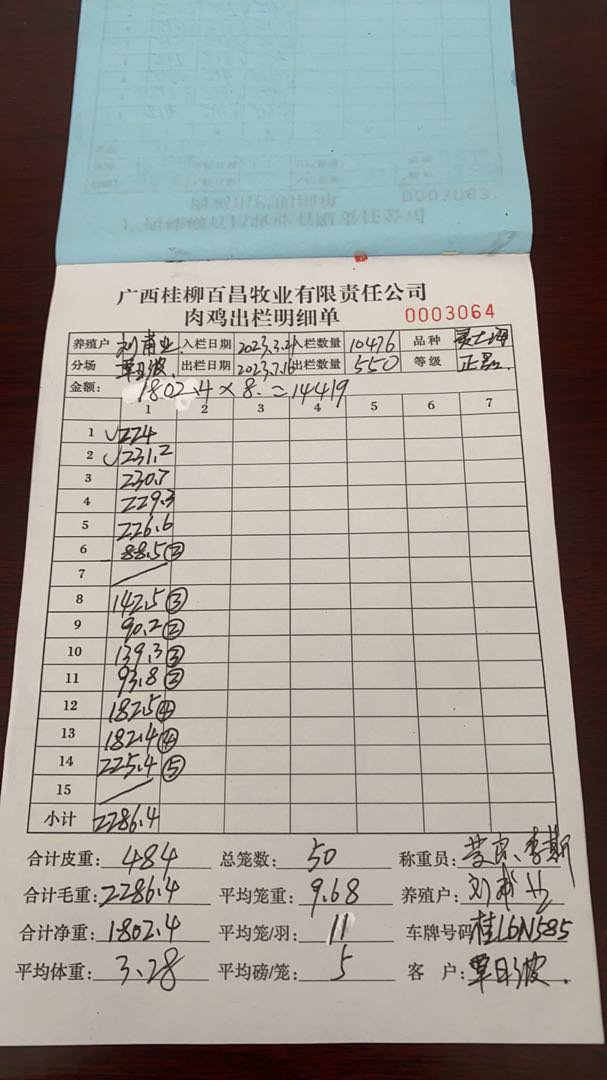 0003063
广西桂柳百昌牧业有限责任公司
肉鸡出栏明细单 0003064
养殖户 入栏日期 2023.3.21 入栏数量 10476 品种
分场 覃日波 出栏日期 2023.7.16 出栏数量 550 等级 正品
金额: 1802.4 × 8. = 14419
1 2 3 4 5 6 7
1 √224
2 √231.2
3 230.7
4 229.3
5 226.6
6 88.5②
7
8 142.5③
9 90.2②
10 139.3③
11 93.8②
12 182.5④
13 182.4④
14 225.4⑤
15
小计 2286.4
合计皮重: 484 总笼数: 50 称重员:
合计毛重: 2286.4 平均笼重: 9.68 养殖户:
合计净重: 1802.4 平均笼/羽: 11 车牌号码 桂L6N585
平均体重: 3.28 平均磅/笼: 5 客 户: 覃日波.